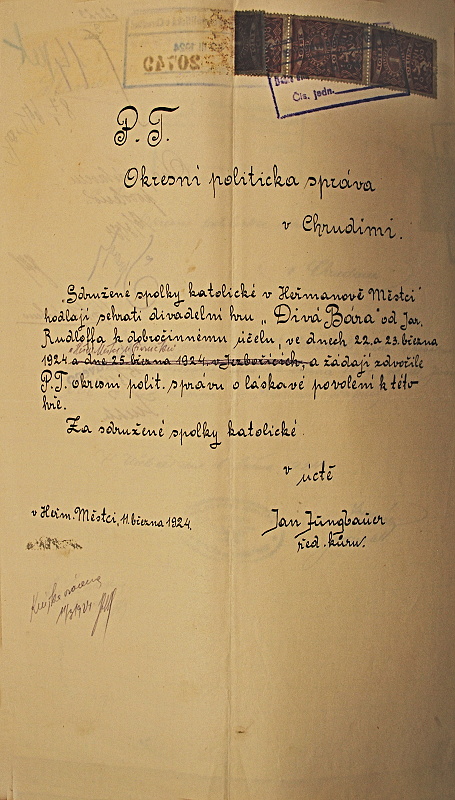 20749
Čís. jedn.
P. T.
Okresní politická správa
v Chrudimi.
„Sdružené spolky katolické v Heřmanově Městci“
hodlají sehrati divadelní hru „Divá Bára“ od Jar.
Rudloffa k dobročinnému účelu, ve dnech 22. a 23. března
1924 a dne 25. března 1924, v Jezbořicích, a žádají zdvořile
P.T. okresní polit. správu o laskavé povolení k této
hře.
Za sdružené spolky katolické
v úctě
v Heřm. Městci, 11. března 1924.
Jan Jüngbauer
řed. kůru.